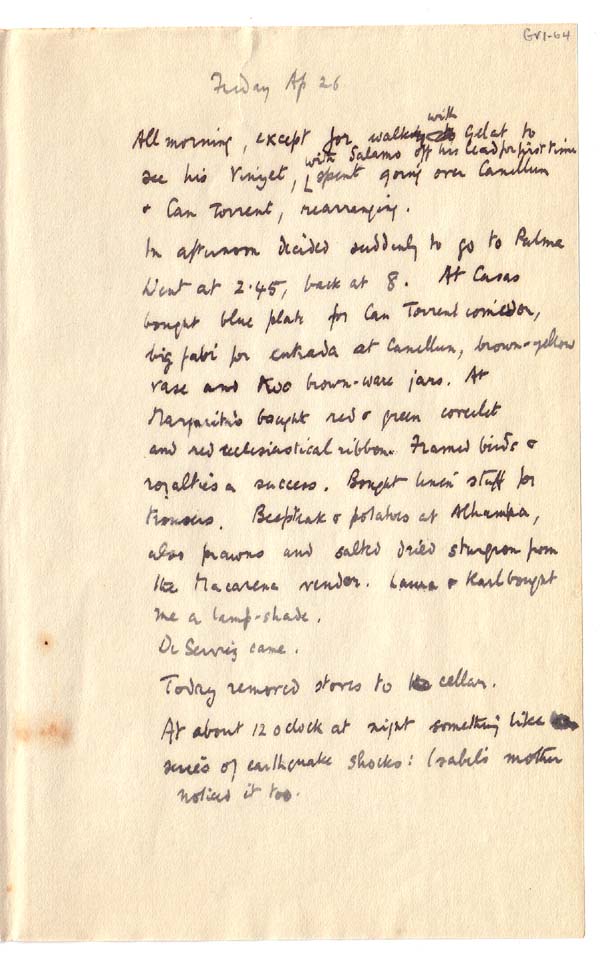 GV1-64
Friday Ap 26
All morning, except for walking with Gelat to
see his Vinyet, with Salamo off his lead for first time
spent going over Canellun
& Can Torrent, rearranging.
In afternoon decided suddenly to go to Palma
Went at 2.45, back at 8. At Casas
bought blue plate for Can Torrent comedor,
big for entrada at Canellun, brown-yellow
vase and two brown-ware jars. At
Margarita's bought red & green coverlet
and red ecclesiastical ribbon. Framed birds &
royalties a success. Bought linen stuff for
trousers. Beefsteak & potatoes at Alhambra,
also prawns and salted dried sturgeon from
the Macarena vendor. Laura & Karl bought
me a lamp-shade.
Dr came.
Today removed stores to cellar.
At about 12 oclock at night something like
series of earthquake shocks: Isabel's mother
noticed it too.